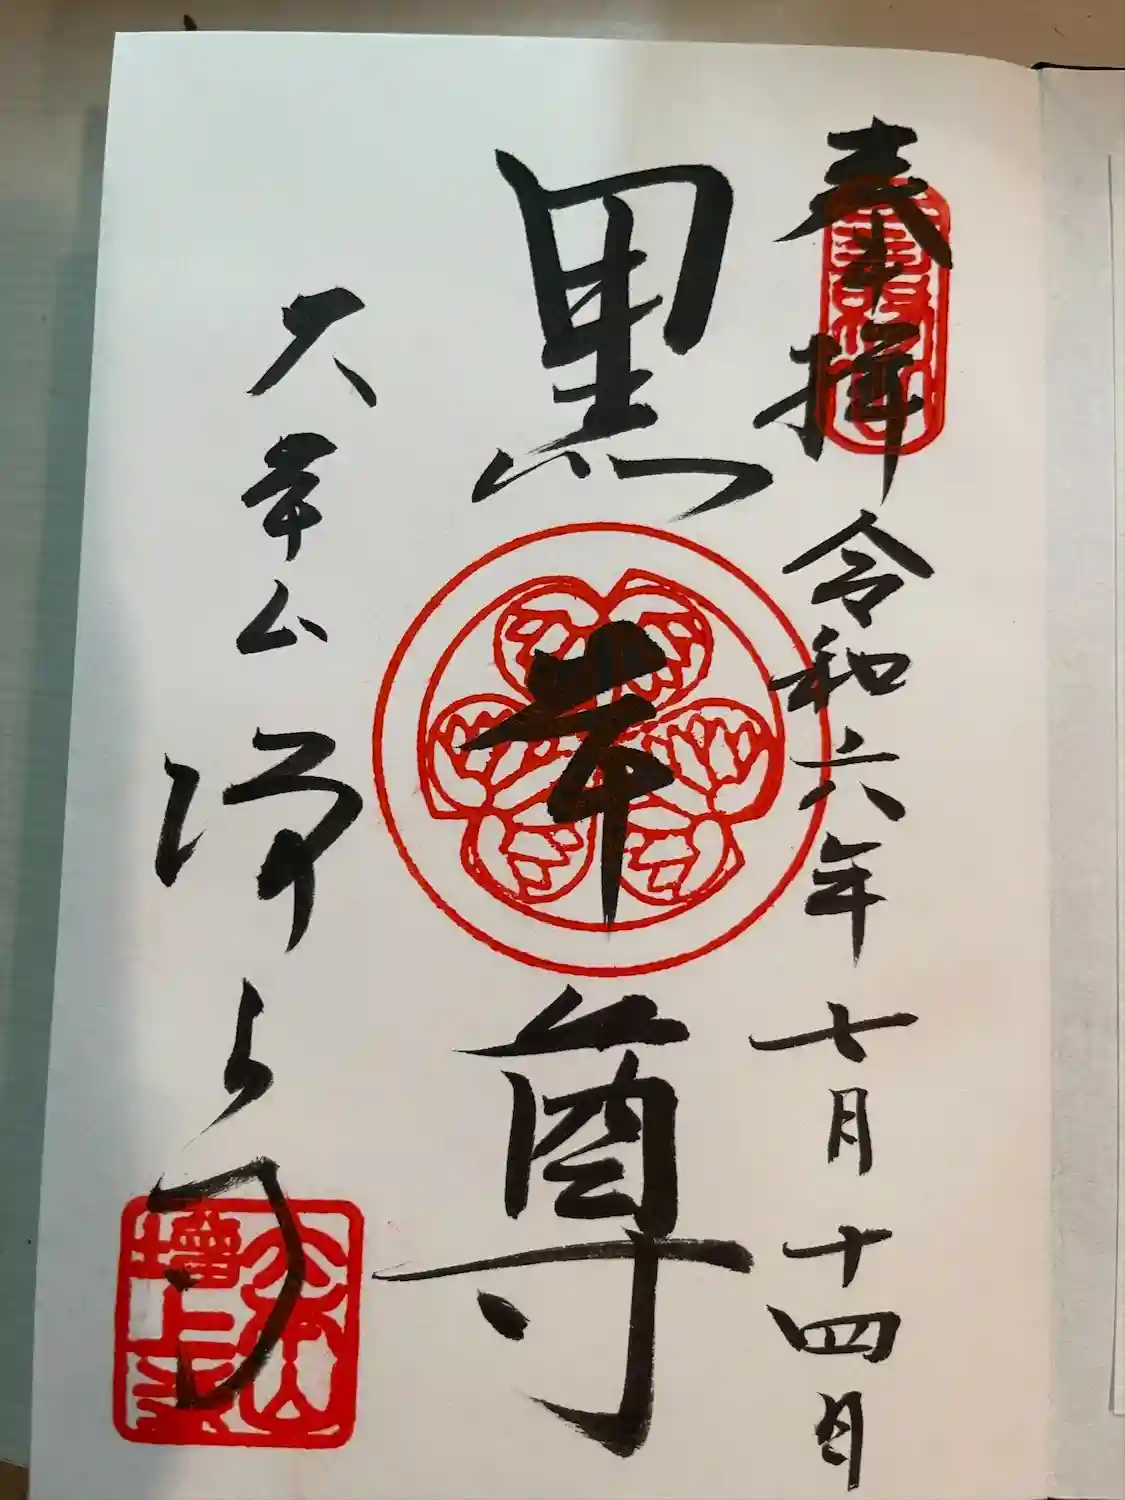 奉拝 令和六年七月十四日
黒本尊
大本山 増上寺
大本山増上寺